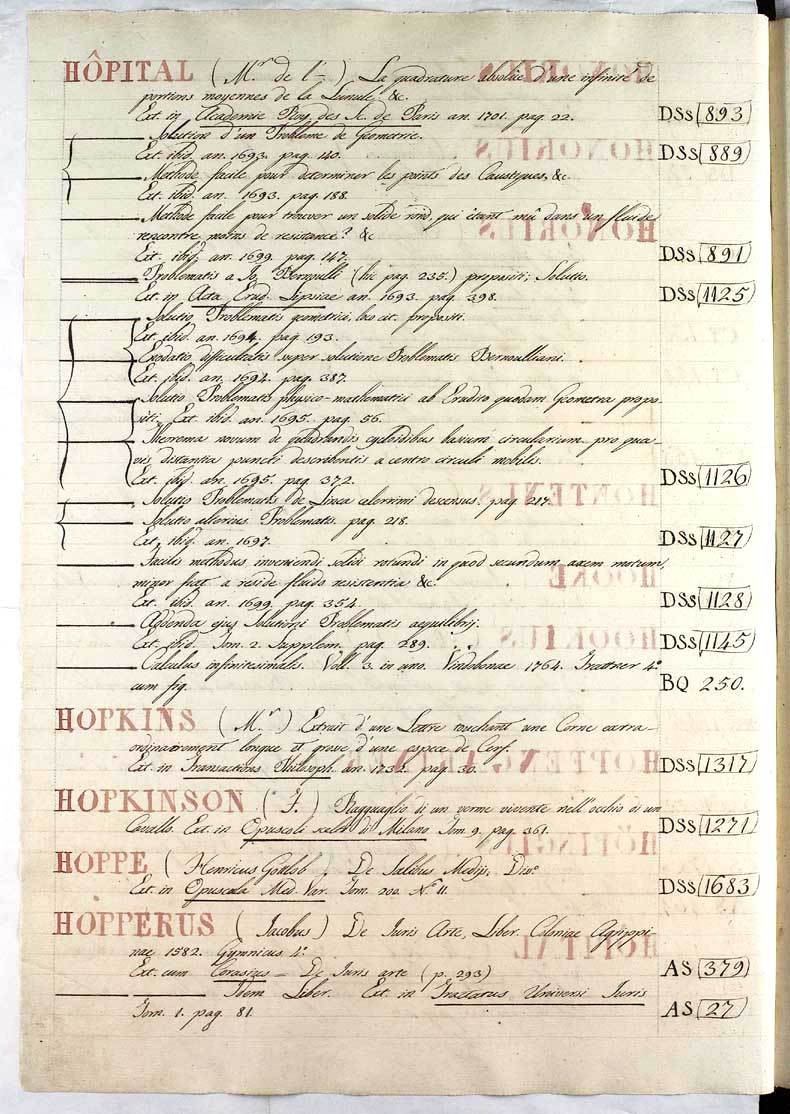 HÔPITAL (Mr. de l'—) La quadrature absolüe d'une infinité de
portions moyennes de la Lunule, &c.
Ext. in Academie Roy. des Sc. de Paris an. 1701. pag. 22. DSs 893
——— Solution d'un Probleme de Geometrie.
Ext. ibid. an. 1693. pag. 140. DSs 889
——— Methode facile pour determiner les points des Caustyques, &c.
Ext. ibid. an. 1693. pag. 188.
——— Methode facile pour trouver un solide rond, qui étant mû dans un fluide
rencontre moins de resistance? &c
Ext. ibid. an. 1699. pag. 147. DSs 891
——— Problematis a Jo. Bernoulli (hic pag. 235.) propositi; Solutio.
Ext. in Acta Erud. Lipsiae an. 1693. pag. 398. DSs 1125
——— Solutio Problematis geometrici, loco cit. propositi.
Ext. ibid. an. 1694. pag. 193.
——— Enodatio difficultatis super solutione Problematis Bernoulliani.
Ext. ibid. an. 1694. pag. 387.
——— Solutio Problematis physico-mathematici ab Erudito quodam Geometra propo-
siti; Ext. ibid. an. 1695. pag. 56.
——— Theorema novum de quadrandis cycloidibus basium circularium pro qua-
vis distantia puncti describentis a centro circuli mobilis.
Ext. ibid. an. 1695. pag. 372. DSs 1126
——— Solutio Problematis de Linea celerrimi descensus. pag. 217.
——— Solutio alterius Problematis. pag. 218.
Ext. ibid. an. 1697. DSs 1127
——— Facilis methodus inveniendi solidi rotundi in quod secundum axem motum,
minor fiat a fluido resistentia &c.
Ext. ibid. an. 1699. pag. 354. DSs 1128
——— Addenda ejus Solutioni Problematis aequilibrij.
Ext. ibid. Tom. 2. Supplem. pag. 289. DSs 1145
——— Calculus infinitesimalis. Voll. 3. in uno. Vindobonae 1764. Trattner 4o.
cum fig. BQ 250.
HOPKINS (Mr.) Extrait d'une Lettre touchant une Corne extra-
ordinairement longue et grosse d'une espece de Cerf.
Ext. in Transactions Philosoph. an. 1732. pag. 30. DSs 1317
HOPKINSON (F.) Ragguaglio di un verme vivente nell'occhio di un
Cavallo. Ext. in Opuscoli scelti di Milano Tom. 9. pag. 361. DSs 1271
HOPPE (Henricus Gotlob). De Salibus Medijs, Diso.
Ext. in Opuscula Med. Var. Tom. 200. No. 11. DSs 1683
HOPPERUS (Jacobus) De Juris Arte, Liber. Coloniae Agrippi-
nae 1582. Gymnicus 4o.
Ext. cum Corasius — De Juris arte (p. 293) AS 379
——— ——— Idem Liber. Ext. in Tractatus Universi Juris
Tom. 1. pag. 81. AS 27